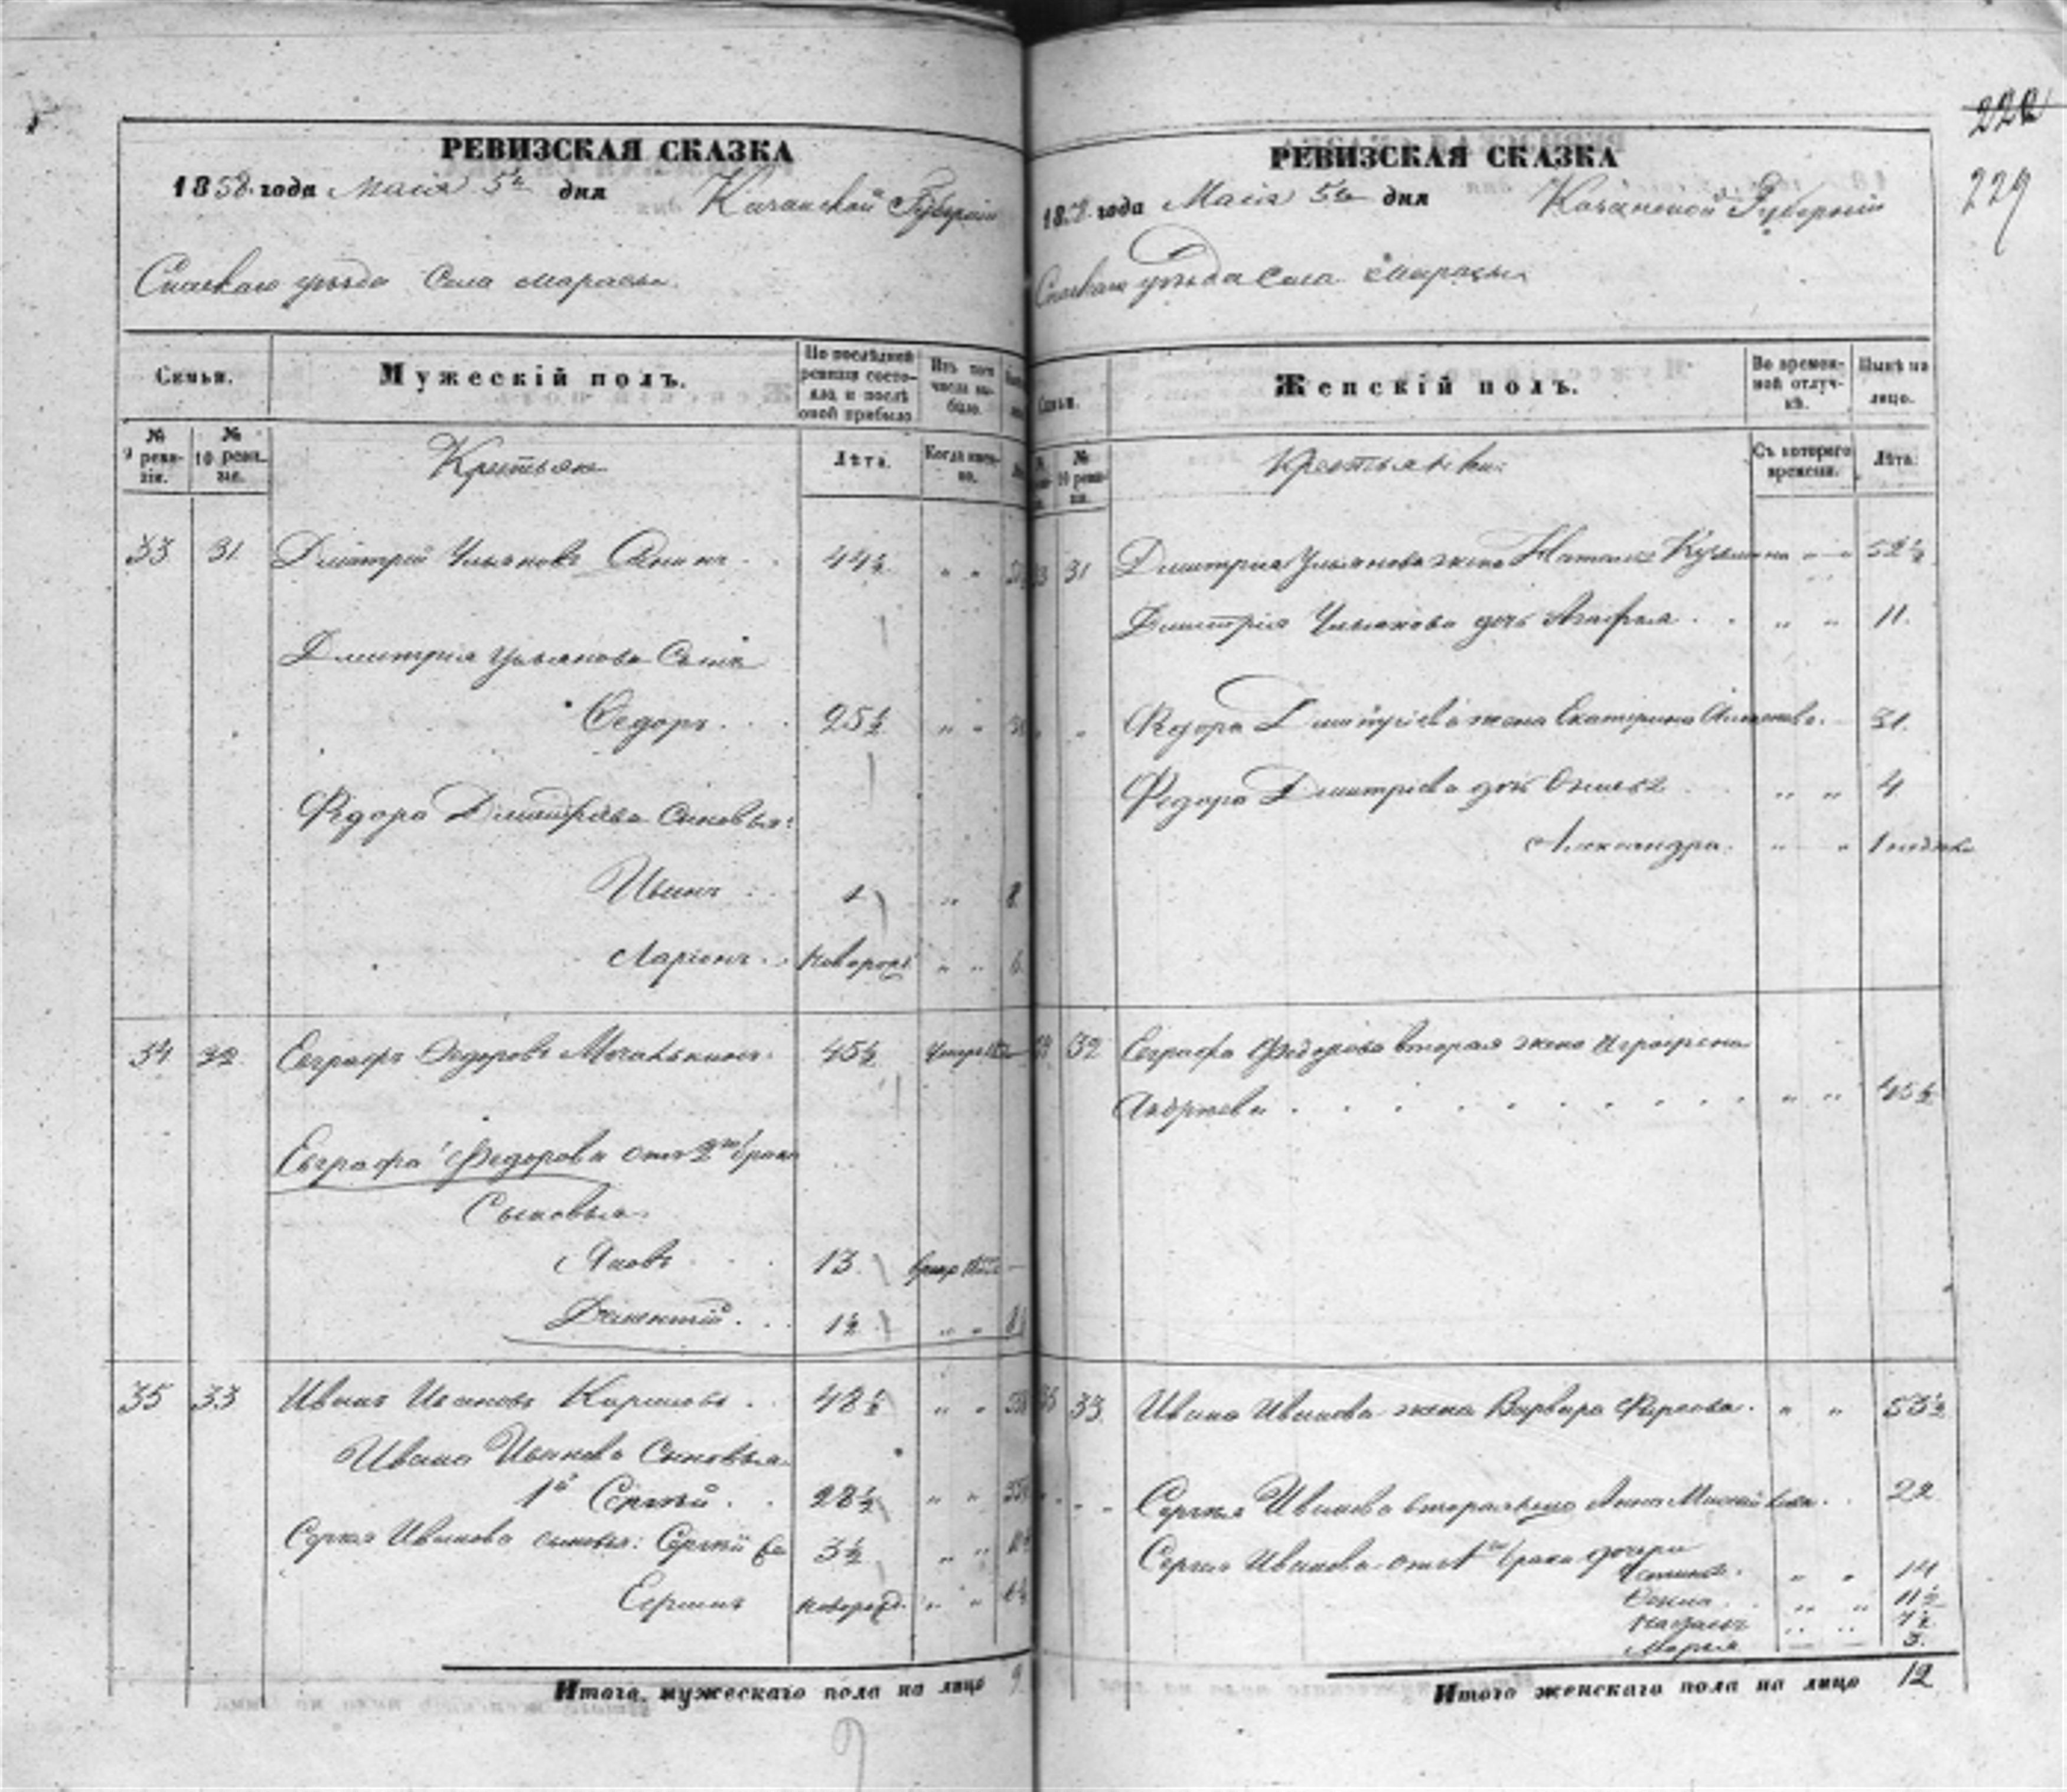 РЕВИЗСКАЯ СКАЗКА
1858 года Маія 5го дня Казанской Губерніи
Спаскаго уѣзда Села Марасы
Семьи.
Мужескій полъ.
По послѣдней ревизіи состояло, и послѣ оной прибыло
Изъ того числа выбыло.
№ 9 ревизіи.
№ 10 ревизіи.
Крестьяне
Лѣта.
Когда именно.
33 31 Дмитрій Ульяновъ 44½ " "
Дмитрія Ульянова Сынъ
Федоръ 25½ " "
Федора Дмитріева Сыновья:
Иванъ 1 "
Ларіонъ новорож. " "
34 32 Евграфъ Федоровъ 45½
Евграфа Федорова отъ 2го брака
Сыновья:
Яковъ 13
Дементій 1½ " "
35 33 Иванъ Ивановъ 48½ " "
Ивана Иванова Сыновья
1й Сергѣй 28½ " "
Сергѣя Иванова сыновья: Сергѣй 3½ " "
новорожд. " "
Итого мужескаго пола на лицо 9
222
229
РЕВИЗСКАЯ СКАЗКА
1858 года Маія 5го дня Казанской Губерніи
Спаскаго уѣзда Села Марасы
Семьи.
Женскій полъ.
Во временной отлучкѣ.
Нынѣ на лицо.
№ 10 ревизіи.
Крестьянки:
Съ котораго времени.
Лѣта.
33 31 Дмитрія Ульянова жена Наталья Кузьмина " " 52½
Дмитрія Ульянова дочь Агафья " " 11.
Федора Дмитріева жена Екатерина 31.
Федора Дмитріева дочь " " 4
Александра. " " 1 недѣля
34 32 Евграфа Федорова вторая жена Аграфена
Андреева " " 45½
35 33. Ивана Иванова жена Варвара Фирсова. " " 53½
Сергѣя Иванова вторая жена Анна 22
Сергѣя Иванова отъ 1го брака дочери
Устинья. " " 14
" " 11½
Наталья " " 7½
Марья 5.
Итого женскаго пола на лицо 12